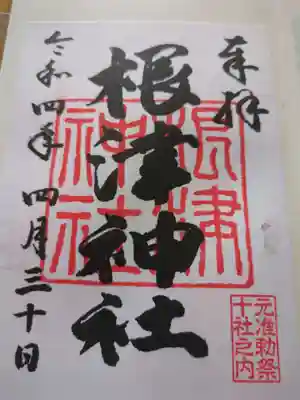 奉拝
根津神社
根津神社
令和四年 四月三十日
元准勅祭
十社之内